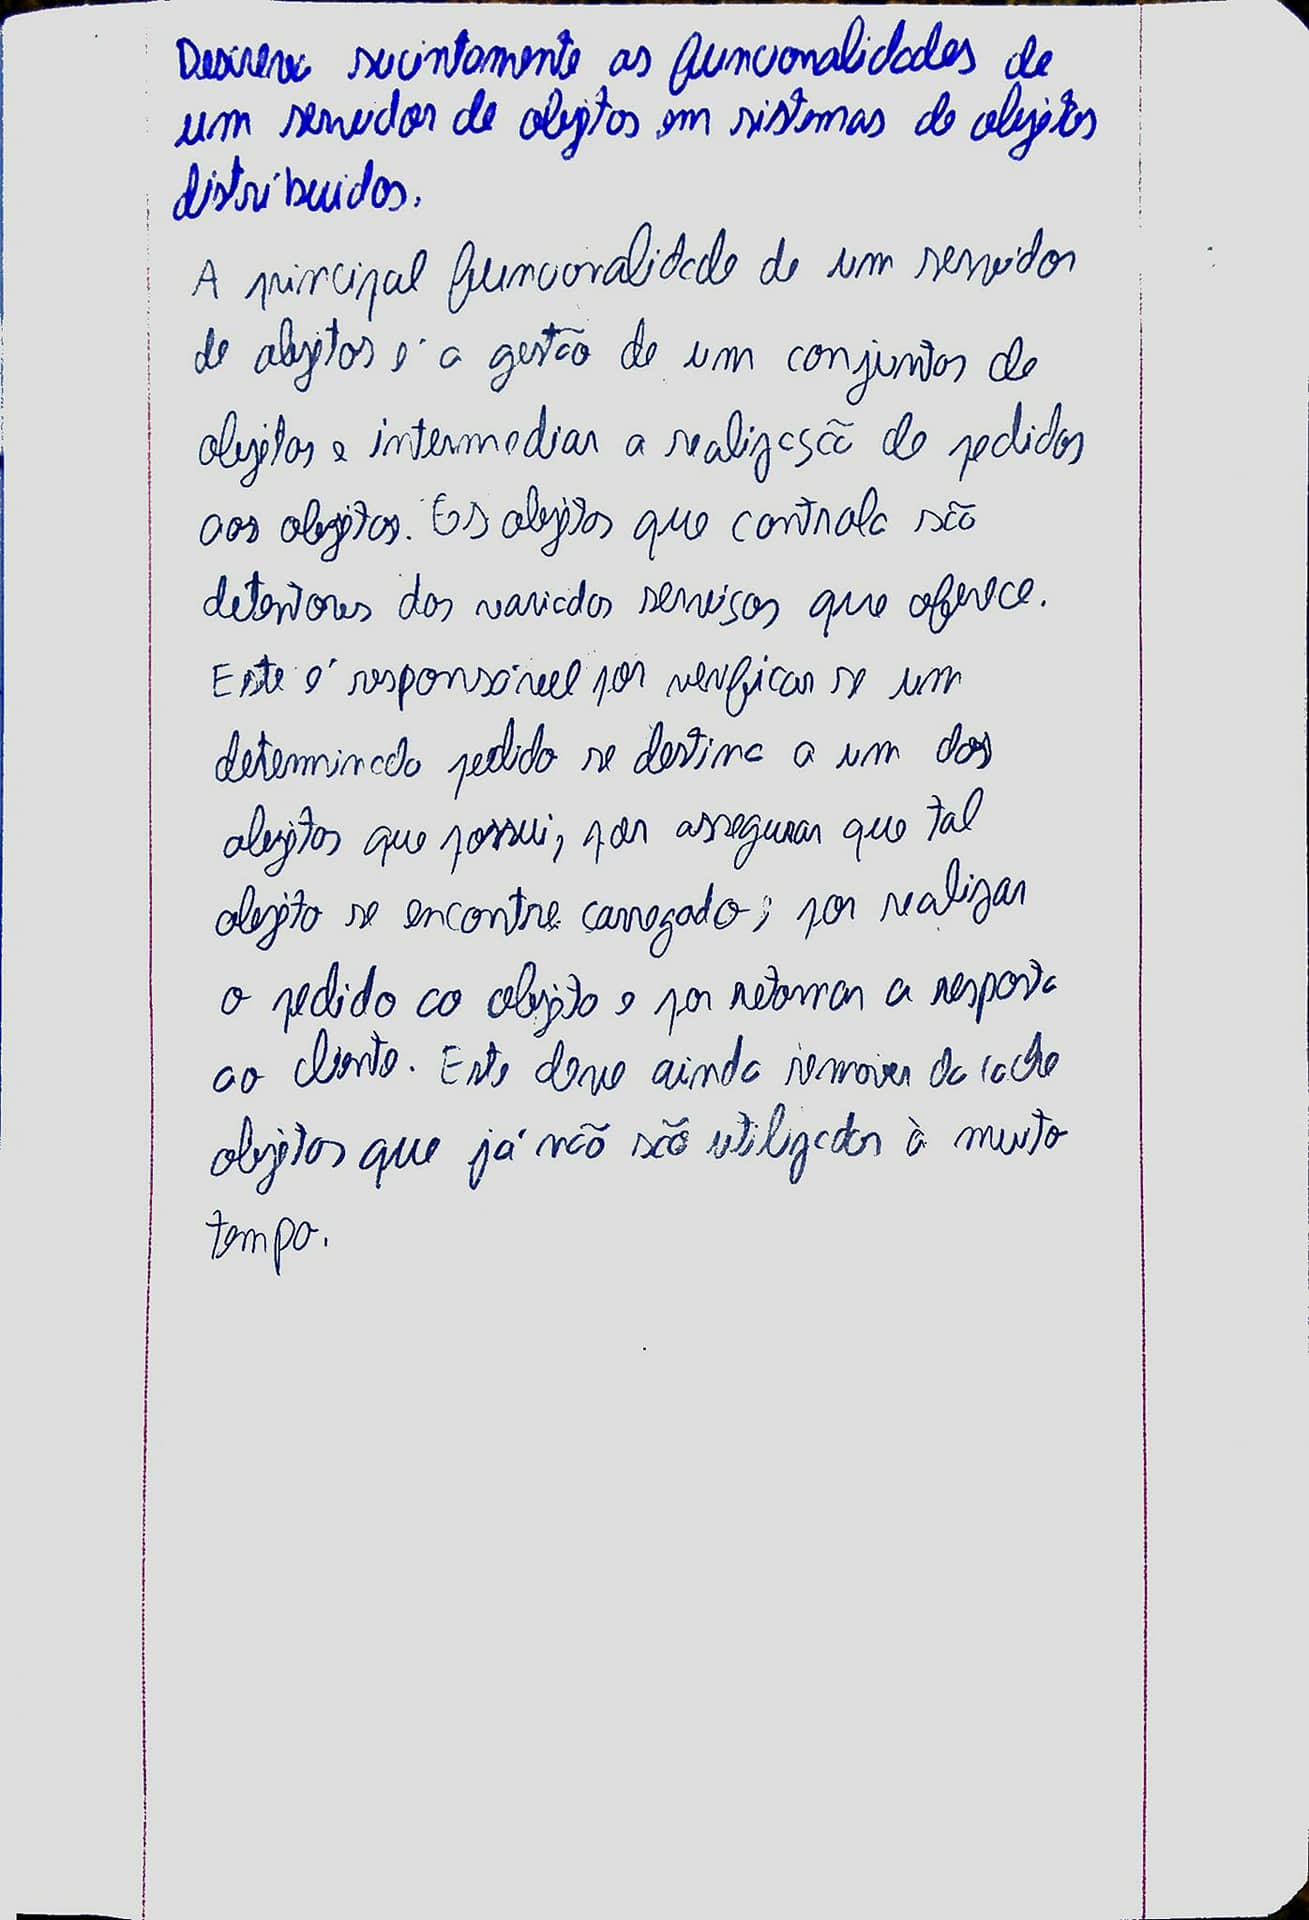 Descreva sucintamente as funcionalidades de
um servidor de objetos em sistemas de objetos
distribuidos.
A principal funcionalidade de um servidor
de objetos é a gestão de um conjuntos de
objetos e intermediar a realização de pedidos
aos objetos. Os objetos que controla são
detentores dos variados serviços que oferece.
Este é responsável por verificar se um
determinado pedido se destina a um dos
objetos que possui, por assegurar que tal
objeto se encontre carregado; por realizar
o pedido ao objeto e por retornar a resposta
ao cliente. Este deve ainda remover da cache
objetos que já não são utilizados à muito
tempo.